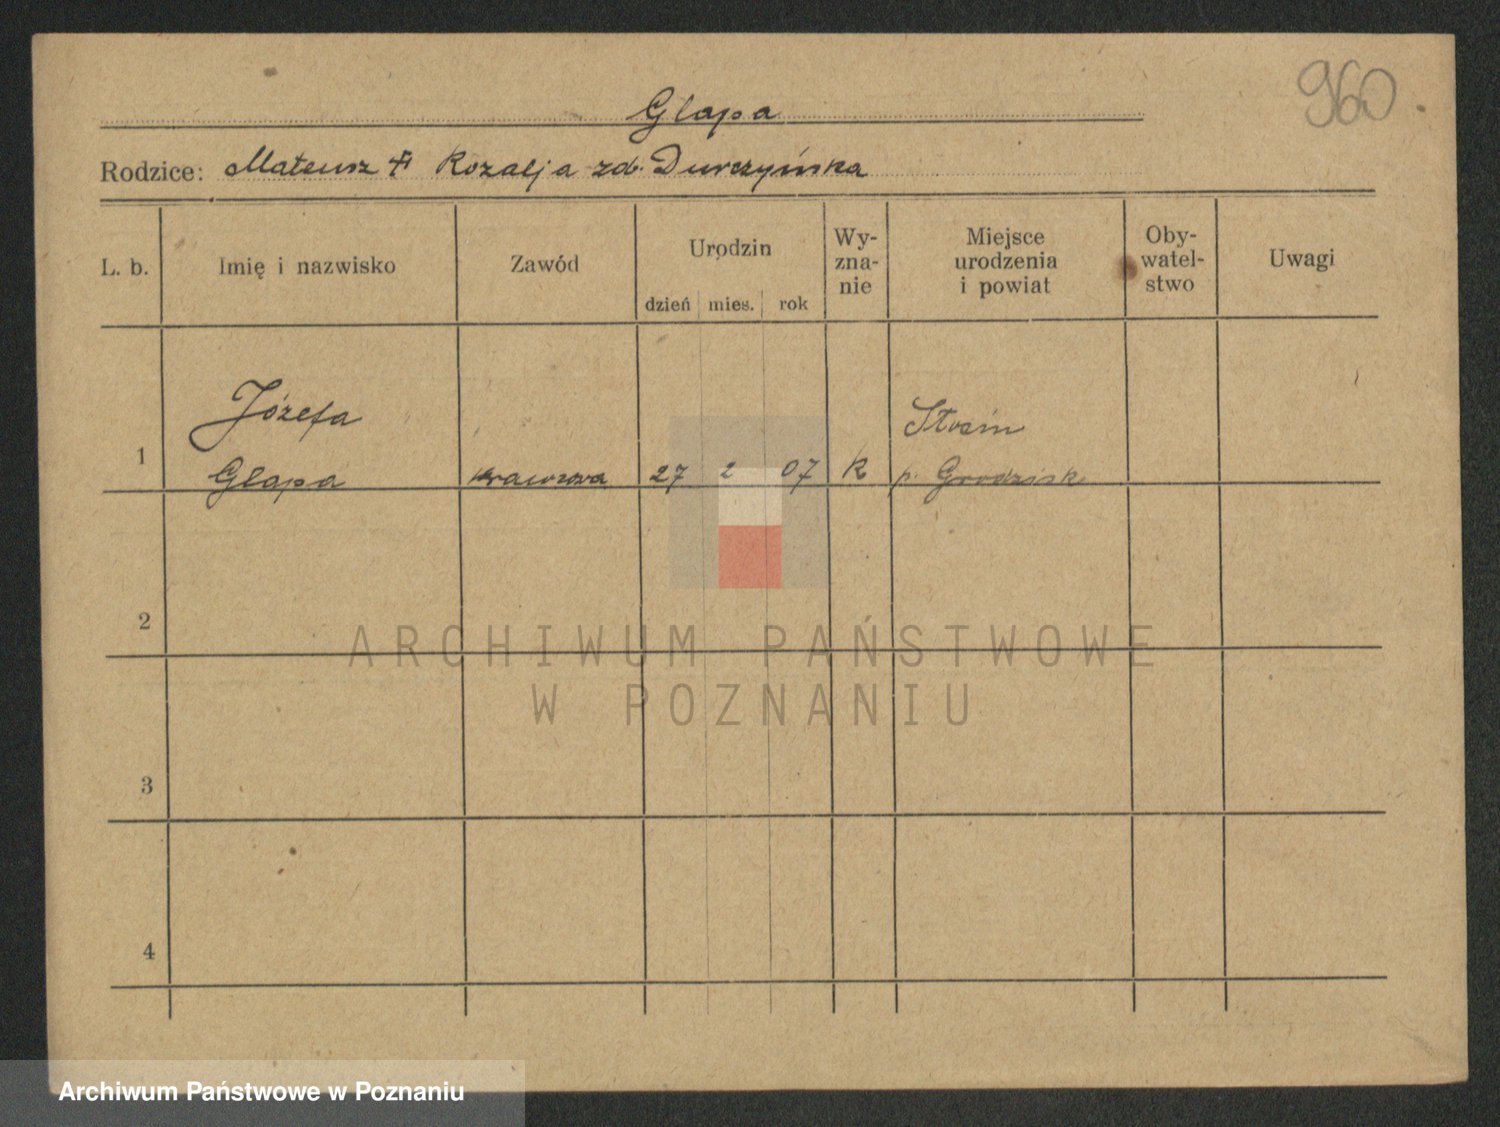 960.
Glapa
Rodzice: Mateusz + Rozalja zd. Durczyńska
L. b.
Imię i nazwisko
Zawód
Urodzin
dzień mies. rok
Wy-
zna-
nie
Miejsce
urodzenia
i powiat
Oby-
watel-
stwo
Uwagi
1
Józefa
Glapa
krawcowa
27 2 07
R
p. Grodzisk
2
3
4
ARCHIWUM PAŃSTWOWE
W POZNANIU
Archiwum Państwowe w Poznaniu